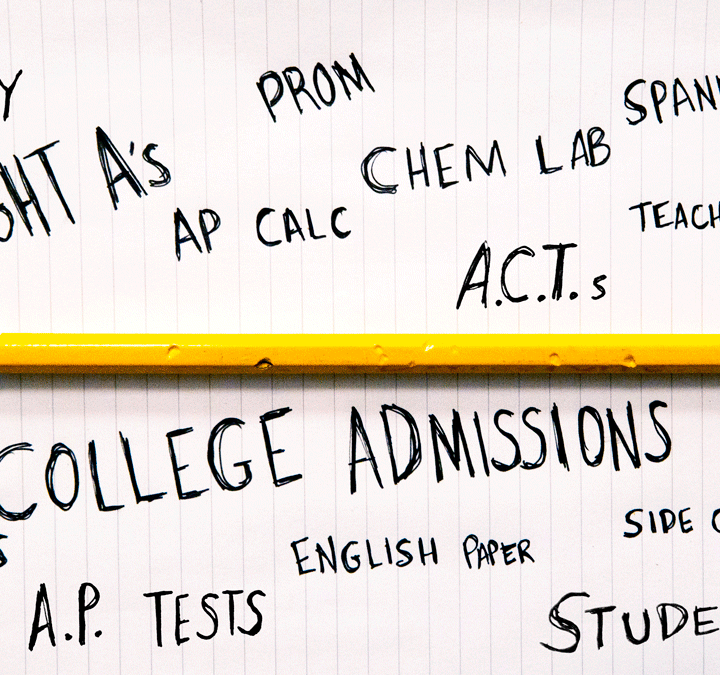 Y
PROM
SPAN
GHT A's
CHEM LAB
AP CALC
TEACH
A.C.T.s
COLLEGE ADMISSIONS
S
ENGLISH PAPER
SIDE
A.P. TESTS
STUDE